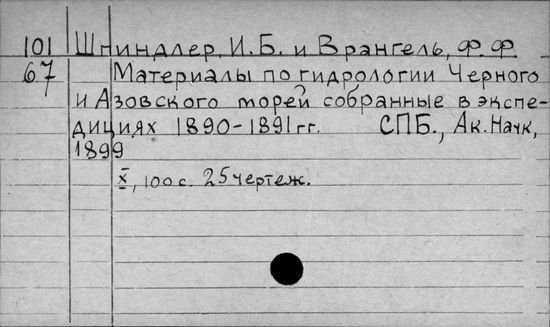 101 Шпиндлер, И.Б. и Врангель, Ф.Ф
67 Материалы по гидрологии Черного
и Азовского морей собранные в экспе-
дициях 1890-1891гг. СПБ., Ак.Наук,
1899
X, 100 с. 25 чертеж.